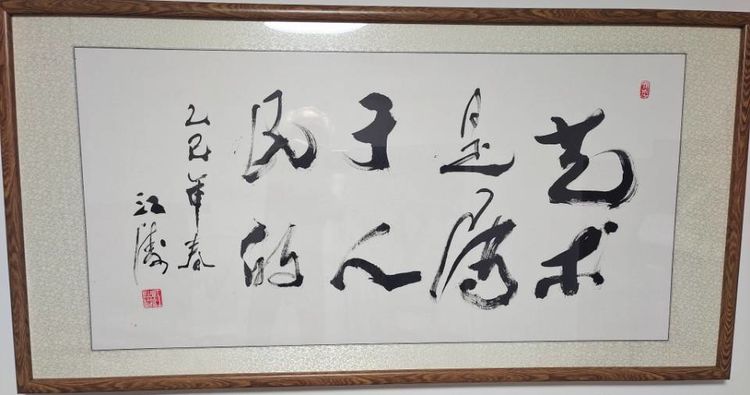 艺术
是属
于人
民的
乙巳年春
江涛